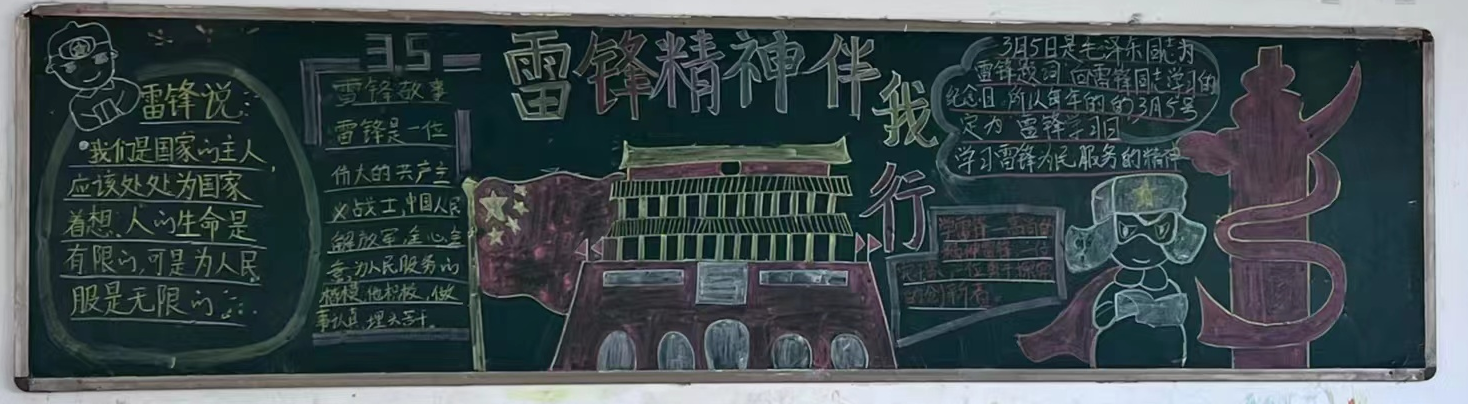 雷锋说:
我们是国家的主人,
应该处处为国家
着想,人的生命是
有限的,可是为人民
服是无限的
35
雷锋故事
雷锋是一位
伟大的共产主
义战士,中国人民
解放军全心全
意为人民服务的
楷模,他积极,做
事认真,埋头苦干。
雷锋精神伴我行
3月5日是毛泽东同志为
雷锋题词 向雷锋同志学习的
纪念日,所以每年的的3月5号
定为 雷锋学习日
学习雷锋为民服务的精神
学雷锋
的创新者。